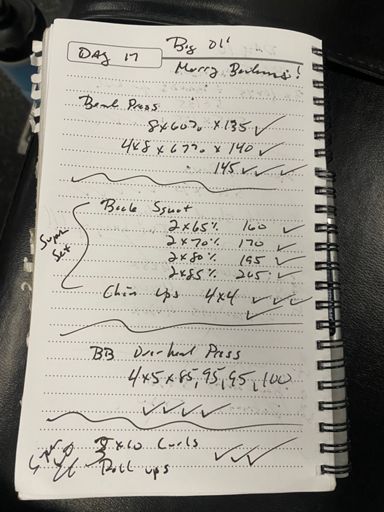 Day 17
Big Ol'
Bench Press
8x60% x 135 ✓
4x8 x 67% x 140 ✓
145 ✓✓✓
Super Set
Back Squat
2x65% 160 ✓
2x70% 170 ✓
2x80% 195 ✓
2x85% 205 ✓
Chin ups 4x4 ✓✓✓✓
BB Overhead Press
4x5x85, 95, 95, 100
✓✓✓✓
3x10 Curls ✓✓✓
Roll ups